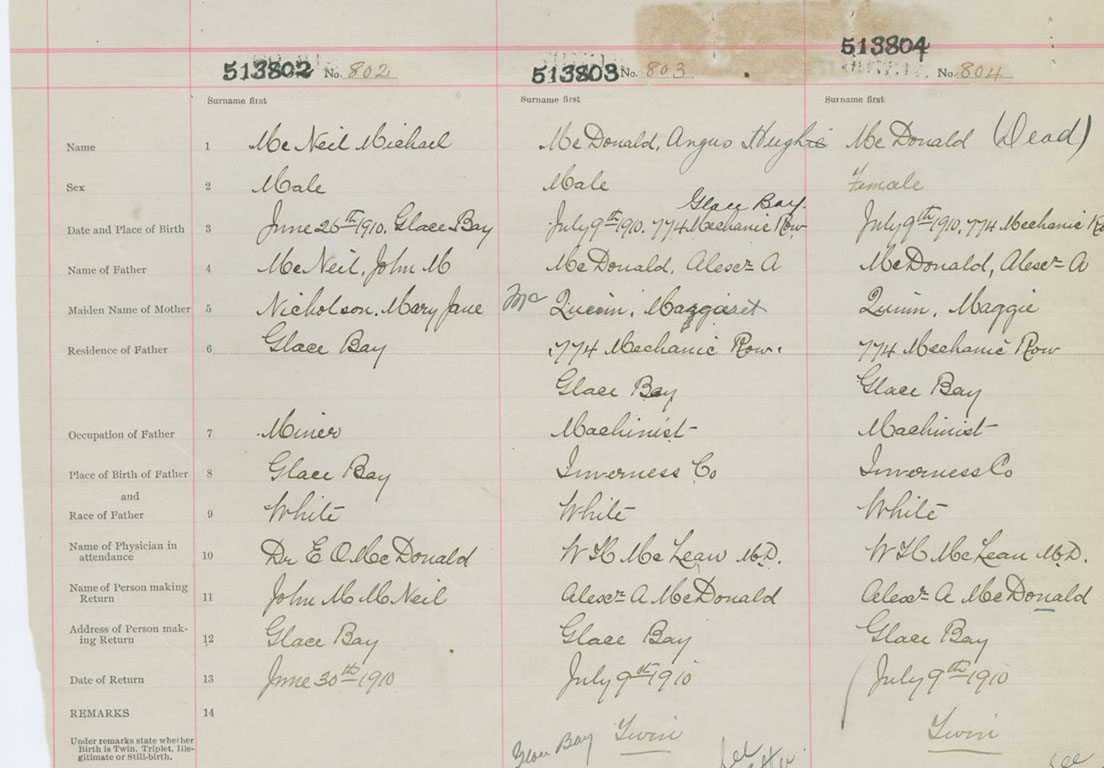 513802 No. 802 513803 No. 803 513804 No. 804
Surname first Surname first Surname first
Name 1 McNeil Michael McDonald, Angus Hughie McDonald (Dead)
Sex 2 Male Male Female
Glace Bay.
Date and Place of Birth 3 June 26th 1910. Glace Bay July 9th 1910. 774 Mechanic Row July 9th 1910. 774 Mechanic Ro
Name of Father 4 McNeil, John M McDonald, Alexr A McDonald, Alexr A
Maiden Name of Mother 5 Nicholson. Mary Jane Mc Quinn, Margaret Quinn, Maggie
Residence of Father 6 Glace Bay 774 Mechanic Row. 774 Mechanic Row
Glace Bay Glace Bay
Occupation of Father 7 Miner Machinist Machinist
Place of Birth of Father 8 Glace Bay Inverness Co Inverness Co
and
Race of Father 9 White White White
Name of Physician in
attendance 10 Dr E O McDonald W H McLean M.D. W H McLean M.D.
Name of Person making
Return 11 John M McNeil Alexr A McDonald Alexr A McDonald
Address of Person mak-
ing Return 12 Glace Bay Glace Bay Glace Bay
Date of Return 13 June 30th 1910 July 9th 1910 July 9th 1910
REMARKS 14
Under remarks state whether
Birth is Twin, Triplet, Ille-
gitimate or Still-birth.
Glace Bay Twin See Twin See